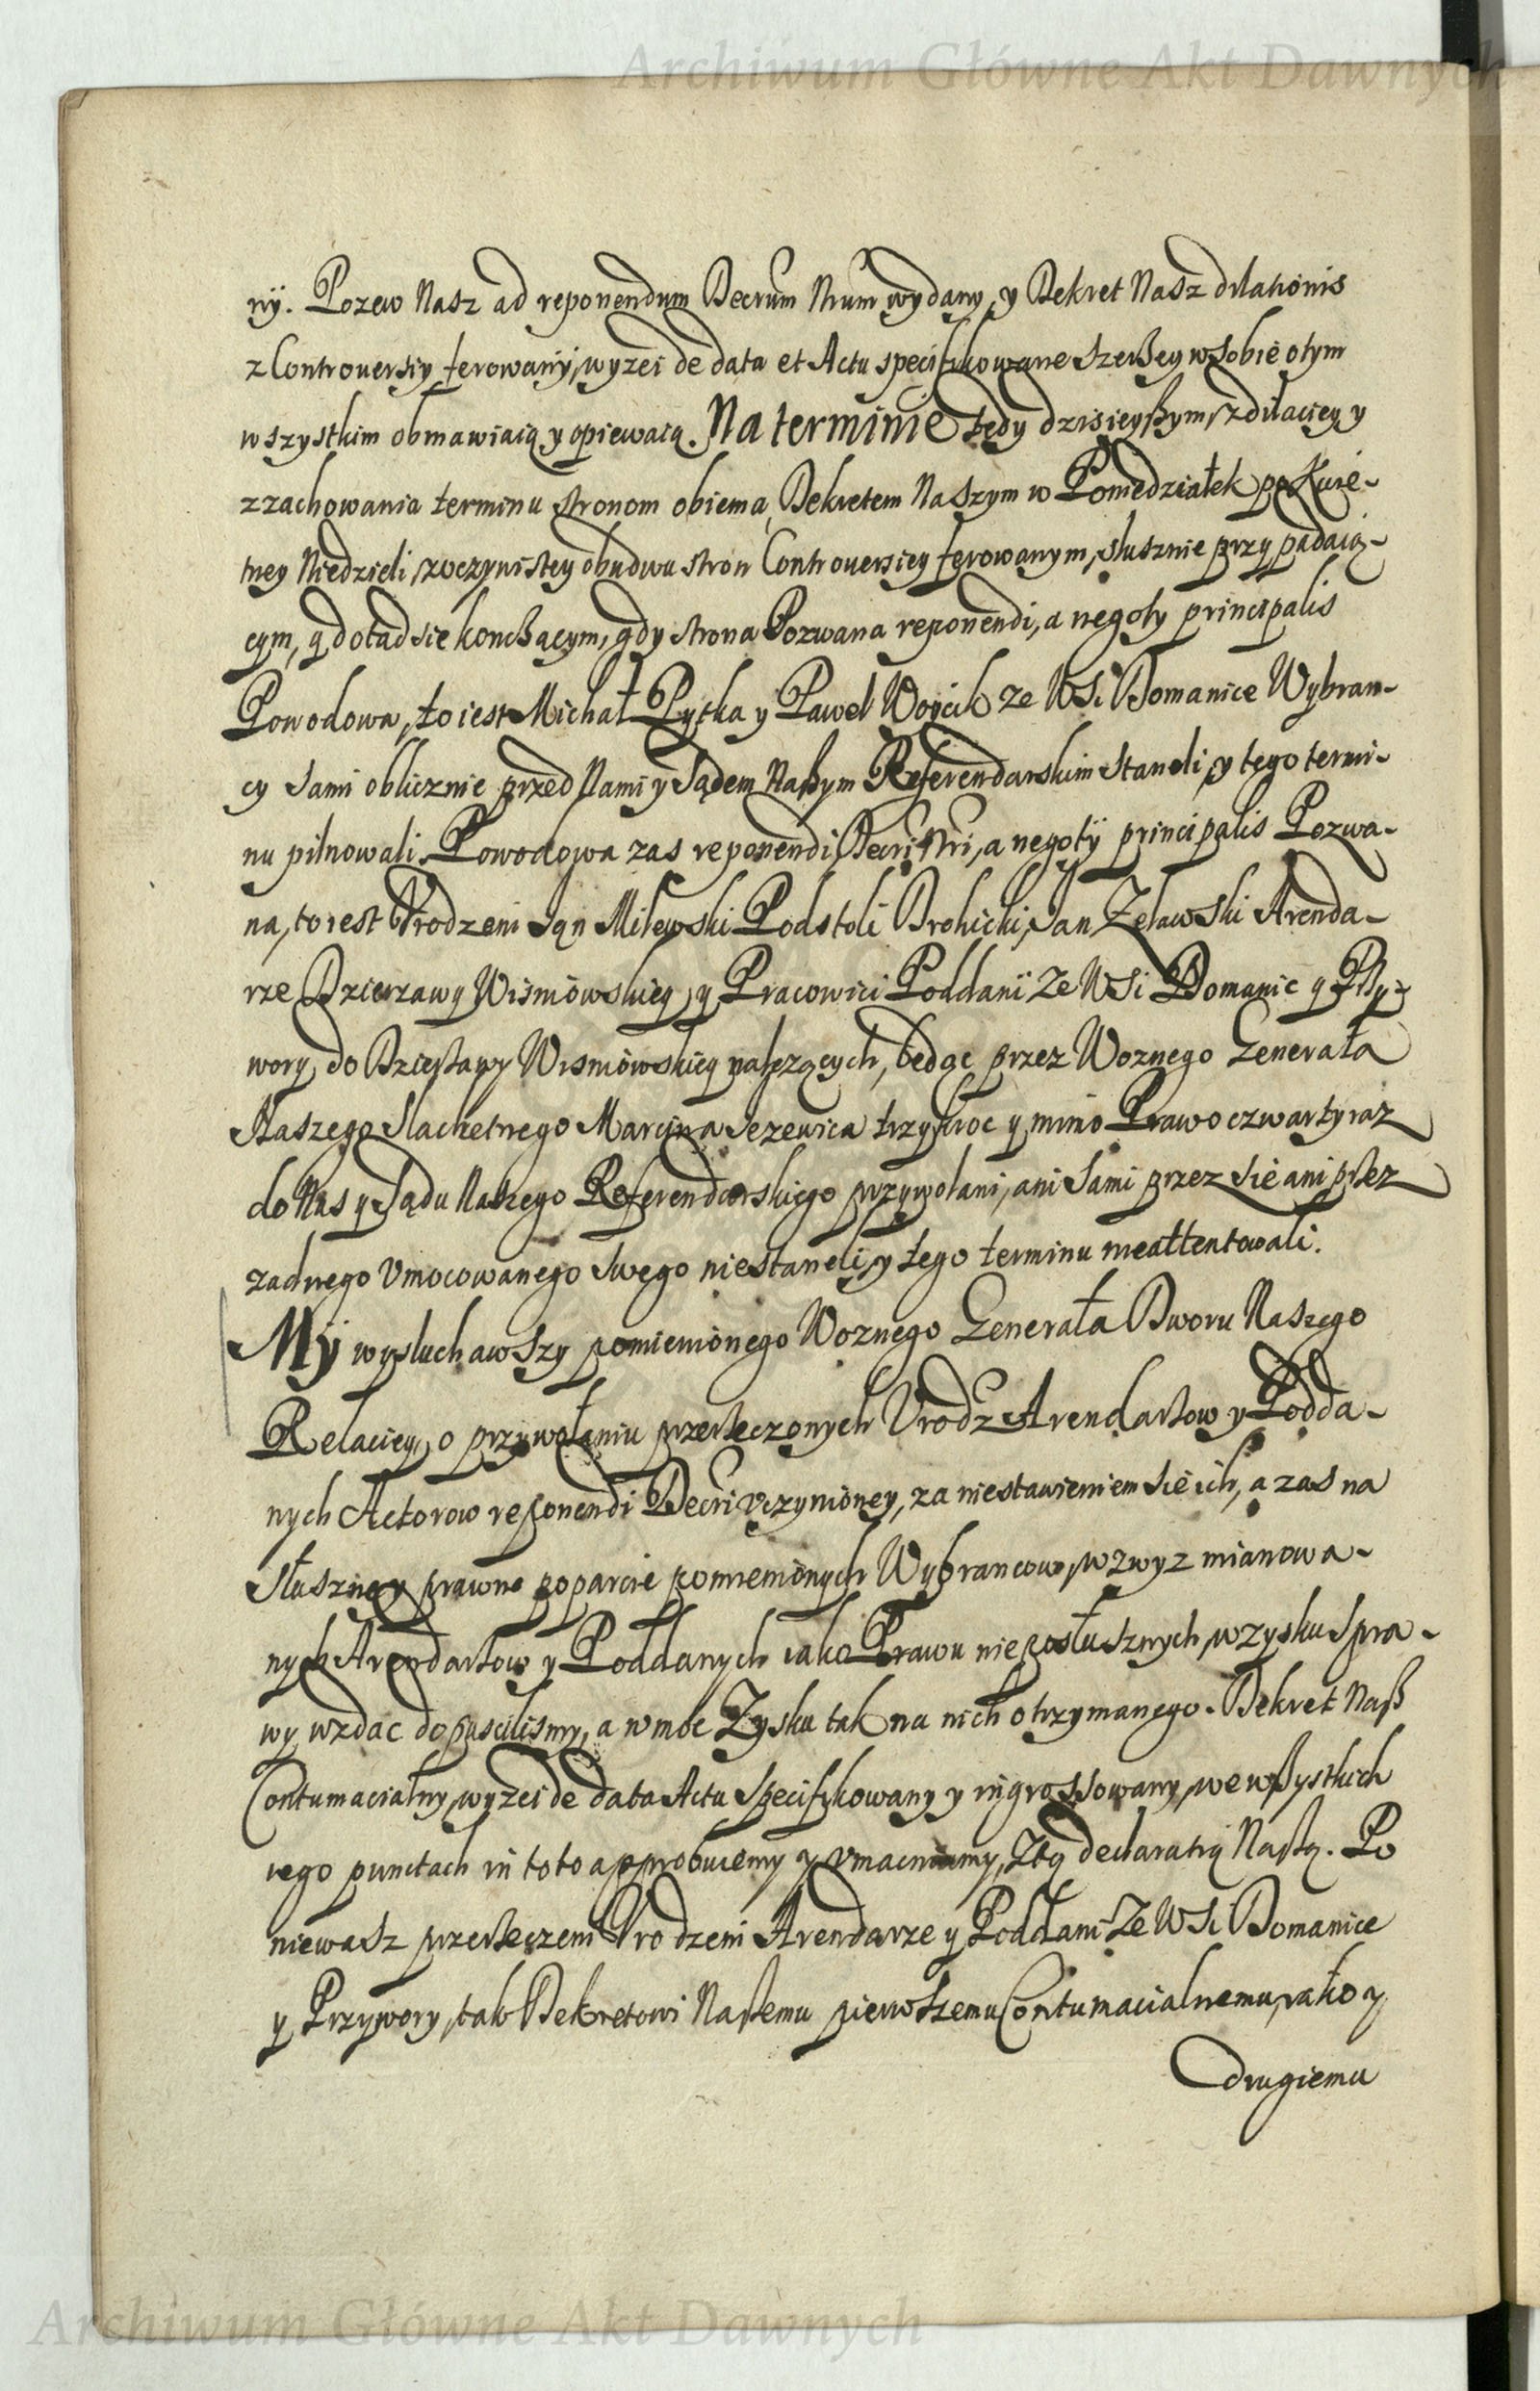 Archiwum Główne Akt Dawnych
ny. Pozew Nasz ad reponendum Decrum Nrum wydany, y Dekret Nasz dilationis
z Controversiy ferowany, wyzei de data et Actu specifikowane szerszey w sobie o tym
wszystkim obmawiaią y opiewaią. Na terminie tedy dzisieyszym, z dilaciey y
z zachowania terminu stronom obiema, Dekretem Naszym w Poniedziałek po Kwie-
tney Niedzieli, z oczywistey obudwu stron Controversiey ferowanym, słusznie przypadaią-
cym, y dotąd sie konczącym, gdy strona Pozwana reponendi, a negoty principalis
Powodowa, to iest Michał Pytka y Paweł Woycik ze Wsi Domanice Wybran-
cy sami oblicznie przed Nami y Sądem Naszym Referendarskim staneli, y tego termi-
nu pilnowali. Powodowa zas reponendi Decri Nri, a negotÿ principalis Pozwa-
na, to iest Vrodzeni Jan Milewski Podstoli Drohicki, Jan Zelawski Arenda-
rze Dzierzawy Wisniowskiey, y Pracowici Poddani ze Wsi Domanic y Przy-
wory do Dzierzawy Wisniowskiey należących, będąc przez Woznego Generała
Naszego Slachetnego Marcina Jezewica trzykroc y mimo Prawo czwarty raz
do Nas y Sądu Naszego Referendarskiego przywołani, ani sami przez się ani przez
zadnego Vmocowanego swego nie staneli, y tego terminu nie attentowali.
Mÿ wysłuchawszy pomienionego Woznego Generała Dworu Naszego
Relaciey, o przywołaniu przerzeczonych Vrodz Arendarzow y Podda-
nych Actorow reponendi Decri vczynioney, za niestawieniem się ich, a zas na
słuszne y prawne poparcie pomienionych Wybrancow, wzwyz mianowa-
nych Arendarzow y Poddanych iako Prawu nieposłusznych, w zysku spra-
wy wzdac dopuscilismy, a w moc Zysku tak na nich otrzymanego. Dekret Nasz
Contumacialny, wyzei de data Actu specifikowany y ingrossowany, we wszystkich
iego punctach in toto approbuiemy y vmacniamy, z tą declaratią Naszą. Po
niewasz przerzeczeni Vrodzeni Arendarze y Poddani ze Wsi Domanice
y Przywory, tak Dekretowi Naszemu pierwszemu Contumacialnemu, iako y
drugiemu
Archiwum Główne Akt Dawnych